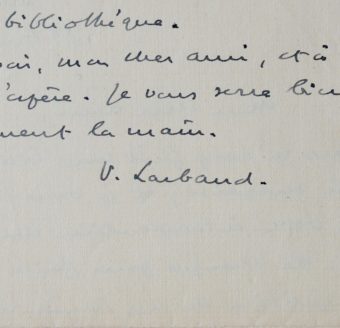 bibliothèque.
oi, mon cher ami, et à
j'espère. Je vous serre bien
ment la main.
V. Larbaud.